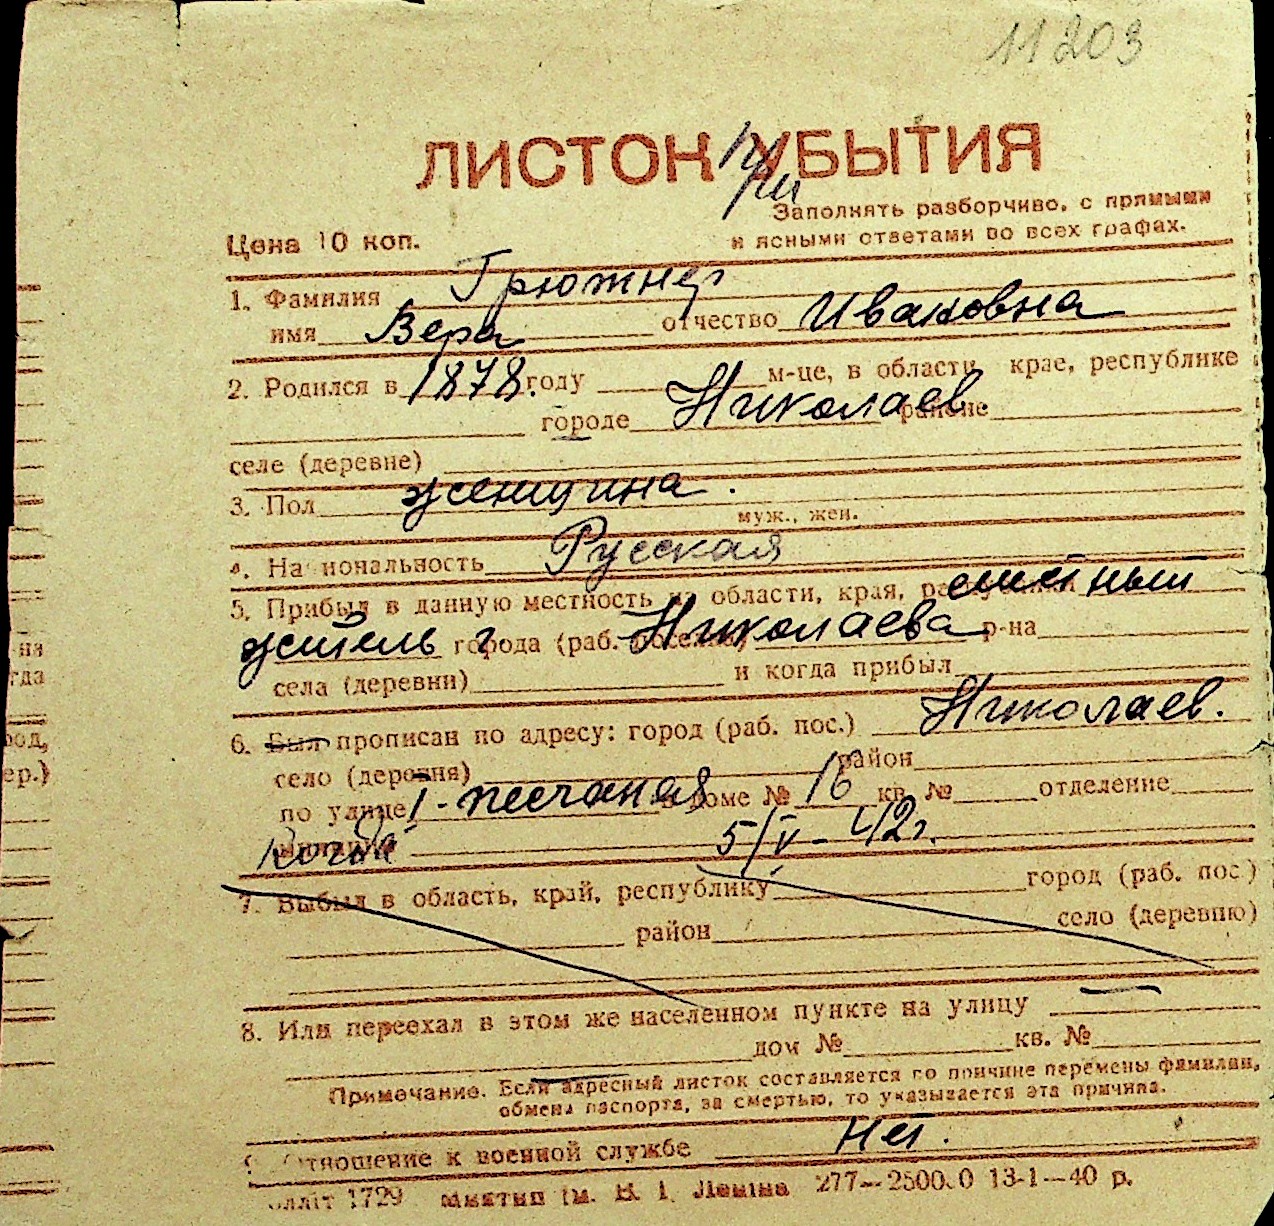 11203
ЛИСТОК УБЫТИЯ
при
Заполнять разборчиво, с прямыми
и ясными ответами во всех графах.
Цена 10 коп.
1. Фамилия Грюжнер
имя Вера отчество Ивановна
2. Родился в 1878. году м-це, в области, крае, республике
городе Николаев районе
селе (деревне)
3. Пол женщина.
муж., жен.
4. Национальность Русская
5. Прибыл в данную местность из области, края, местный
житель г города (раб. поселка) Николаева р-на
села (деревни) и когда прибыл
6. Был прописан по адресу: город (раб. пос.) Николаев.
село (деревня) район
по улице 1-песчаная в доме № 16 кв. № отделение
Когда 5/V-42г.
7. Выбыл в область, край, республику город (раб. пос.)
район село (деревню)
8. Или переехал в этом же населенном пункте на улицу
дом № кв. №
Примечание. Если адресный листок составляется по причине перемены фамилии,
обмена паспорта, за смертью, то указывается эта причина.
Отношение к военной службе Нет.
1729 им. В. И. Ленина 277—250000 13-1—40 р.
на
гда
род,
ер.)